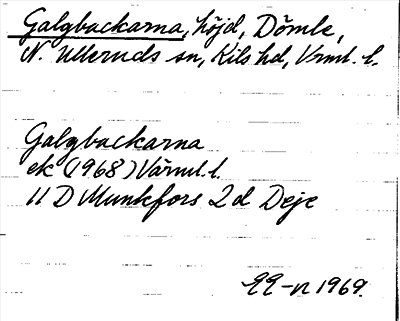 Galgbackarna, höjd, Dömle,
N. Ulleruds sn, Kils hd, Vrml. l.
Galgbackarna
ek (1968) Värml. l.
11 D Munkfors 2d Deje
1969.